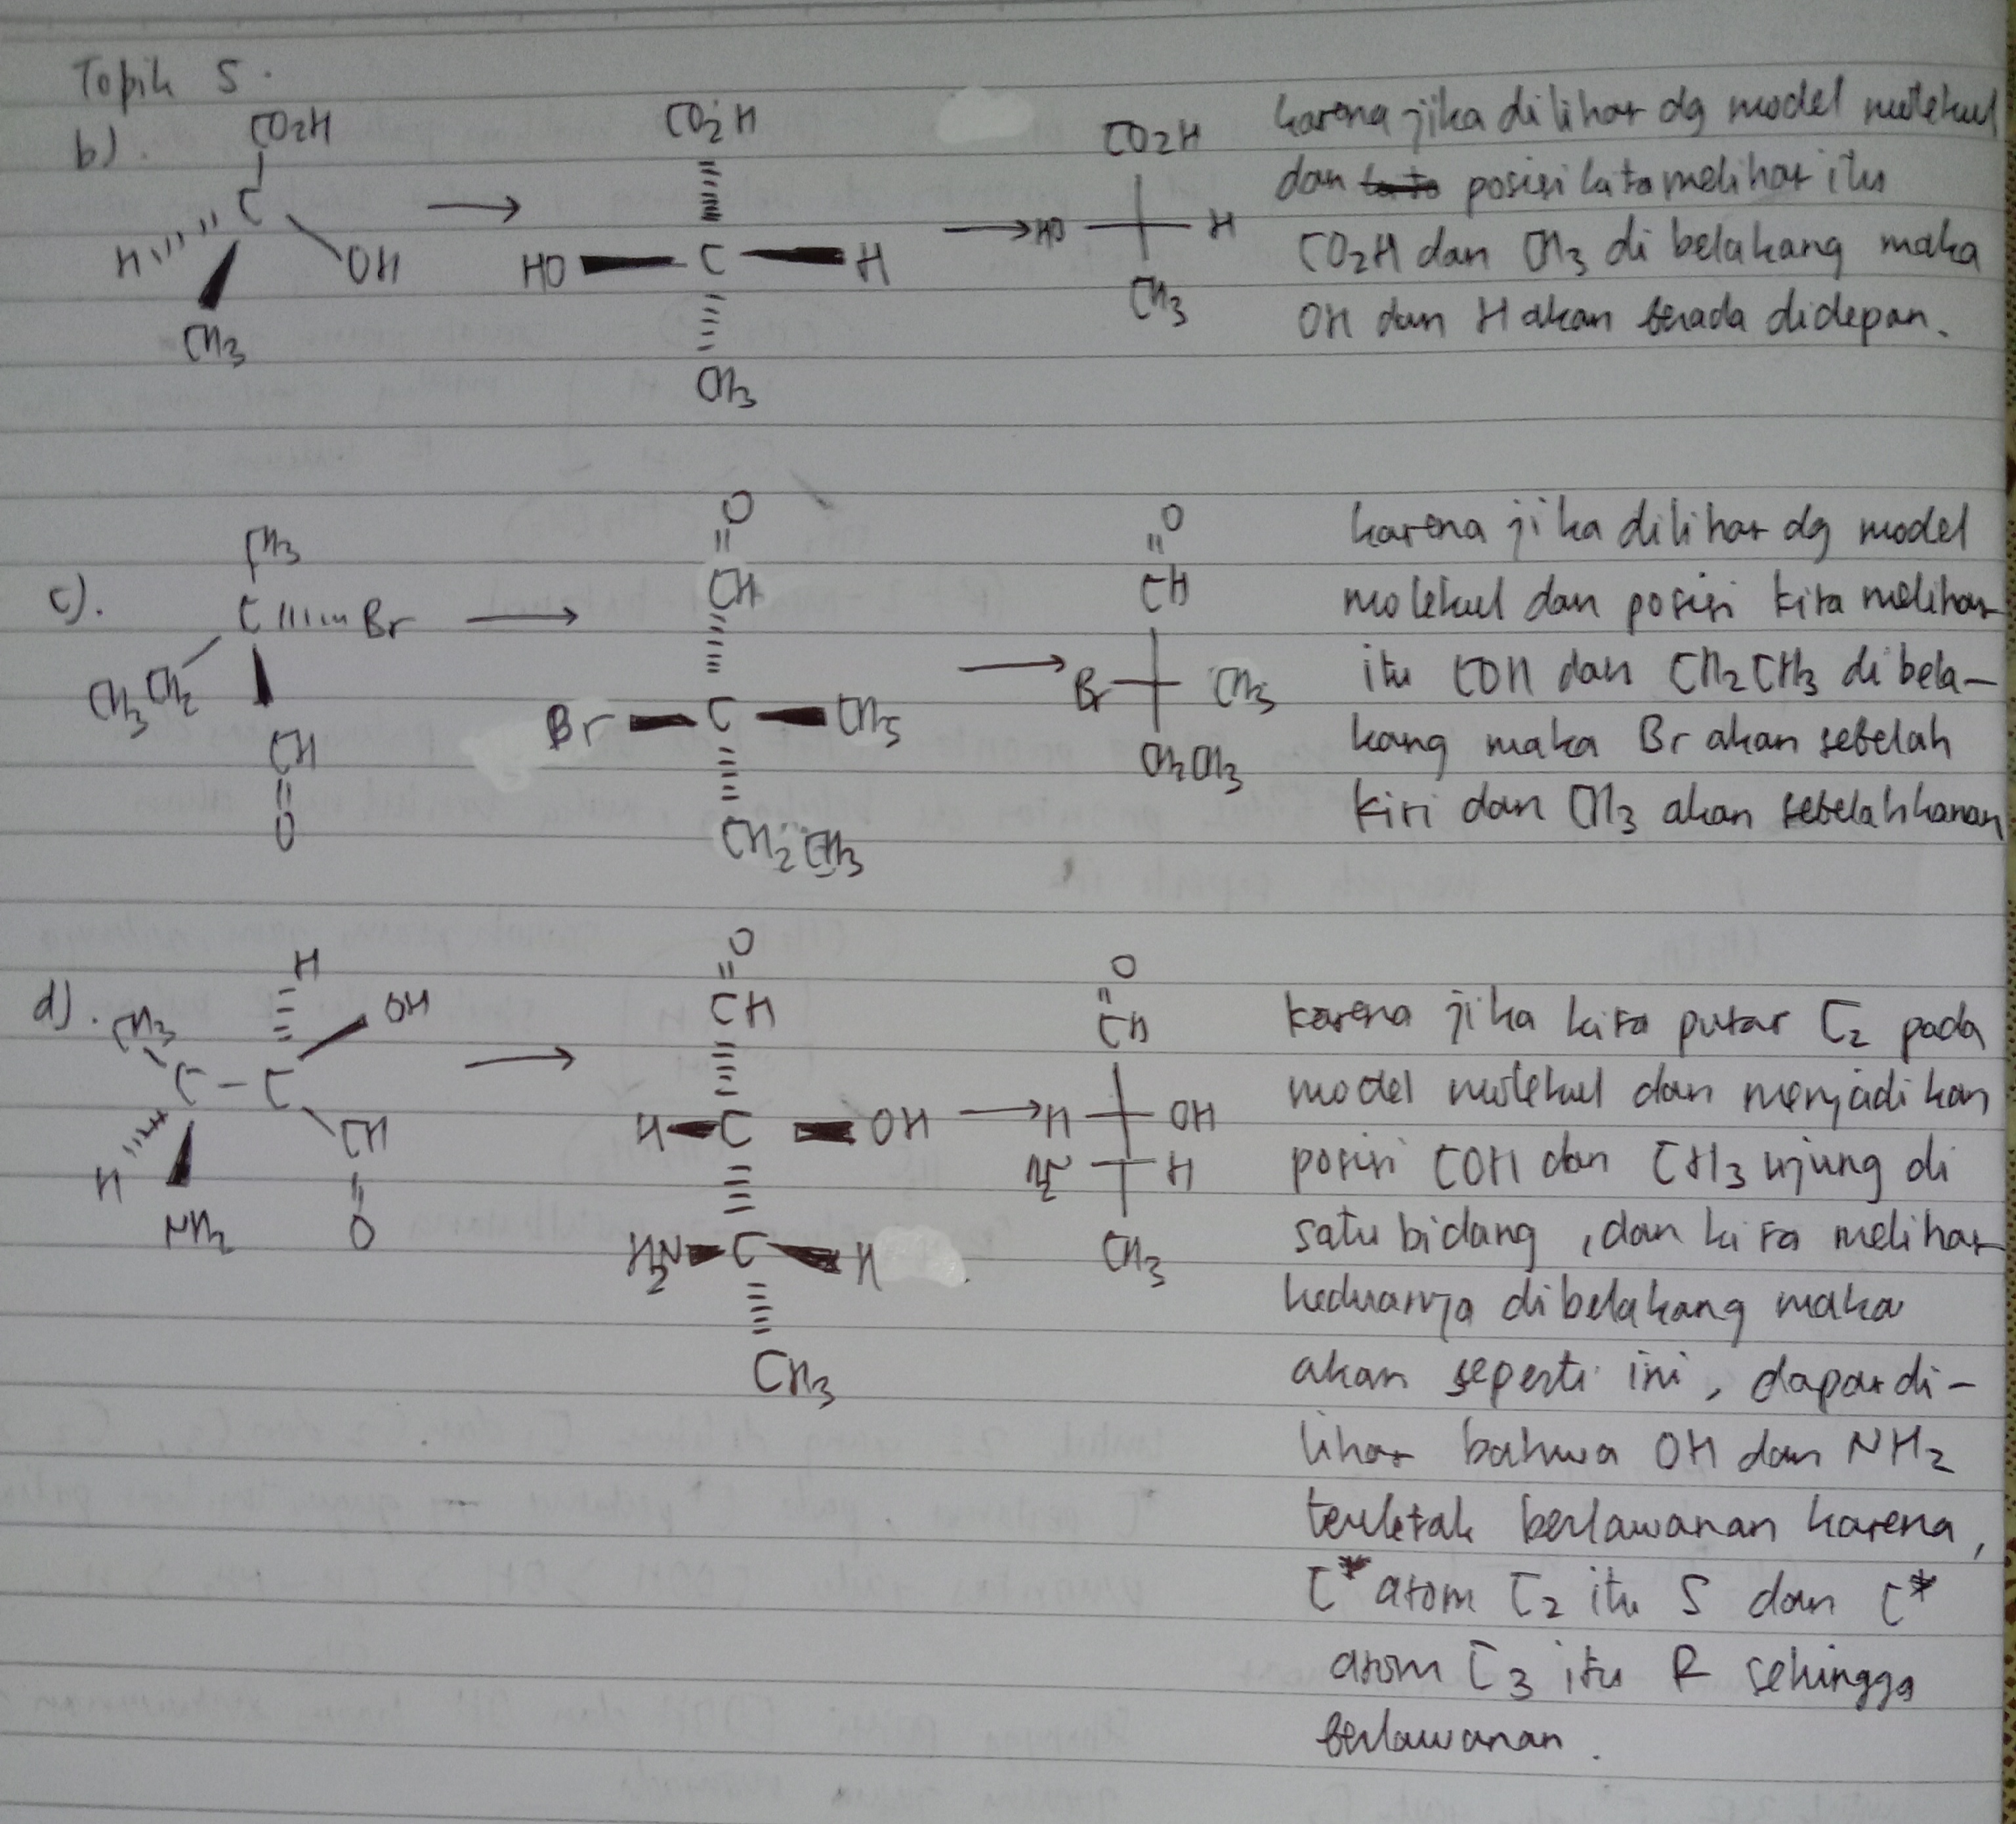 Topik 5.
b).
CO2H
C
H
OH
CH3
CO2H
HO C H
CH3
CO2H
HO H
CH3
karena jika dilihat dg model molekul
dan posisi kita melihat itu
CO2H dan CH3 di belakang maka
OH dan H akan berada didepan.
c).
CH3
C Br
CH3CH2
CH
O
O
CH
Br C CH3
CH2CH3
O
CH
Br CH3
CH2CH3
karena jika dilihat dg model
molekul dan posisi kita melihat
itu COH dan CH2CH3 di bela-
kang maka Br akan sebelah
kiri dan CH3 akan sebelah kanan
d).
H
CH3 OH
C - C
H CH
NH2 O
O
CH
H C OH
H2N C H
CH3
O
CH
H OH
H
CH3
karena jika kita putar C2 pada
model molekul dan menjadikan
posisi COH dan CH3 ujung di
satu bidang, dan kita melihat
keduanya dibelakang maka
akan seperti ini, dapat di-
lihat bahwa OH dan NH2
terletak berlawanan karena,
C* atom C2 itu S dan C*
atom C3 itu R sehingga
berlawanan.